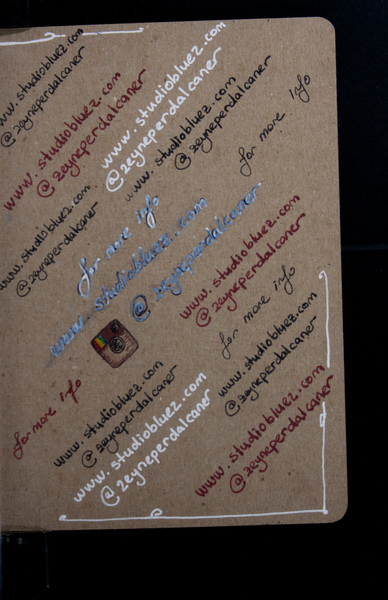 www.studiobluez.com
@zeyneperdalcaner
www.studiobluez.com
@zeyneperdalcaner
www.studiobluez.com
@zeyneperdalcaner
www.studiobluez.com
@zeyneperdalcaner
for more info
www.studiobluez.com
@zeyneperdalcaner
for more info
www.studiobluez.com
@zeyneperdalcaner
www.studiobluez.com
@zeyneperdalcaner
for more info
www.studiobluez.com
@zeyneperdalcaner
for more info
www.studiobluez.com
@zeyneperdalcaner
www.studiobluez.com
@zeyneperdalcaner
www.studiobluez.com
@zeyneperdalcaner